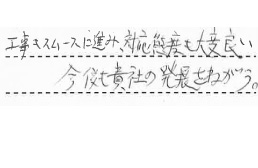 工事もスムースに進み、対応態度も大変良い
今後も貴社の発展をねがう。